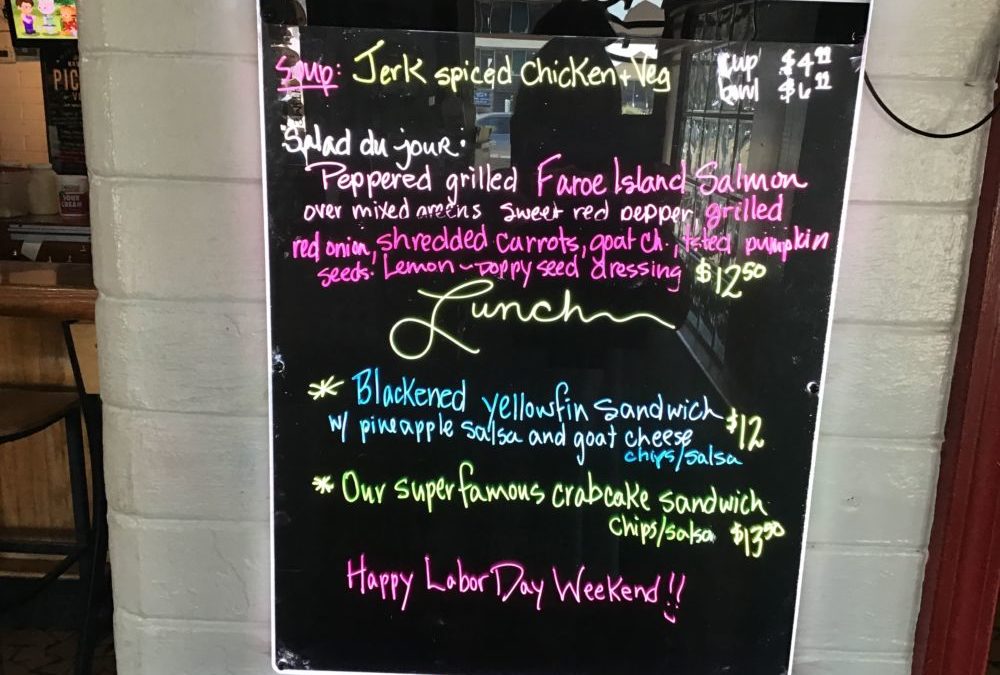 Soup: Jerk spiced Chicken + Veg cup $4
bowl $6
Salad du jour:
Peppered grilled Faroe Island Salmon
over mixed greens sweet red pepper, grilled
red onion, shredded carrots, goat ch., tsted pumpkin
seeds. Lemon-poppy seed dressing $12.50
Lunch
* Blackened yellowfin sandwich $12
w/ pineapple salsa and goat cheese
chips/salsa
* Our super famous crabcake sandwich
chips/salsa $13.50
Happy Labor Day Weekend!!
SOUR
CREAM